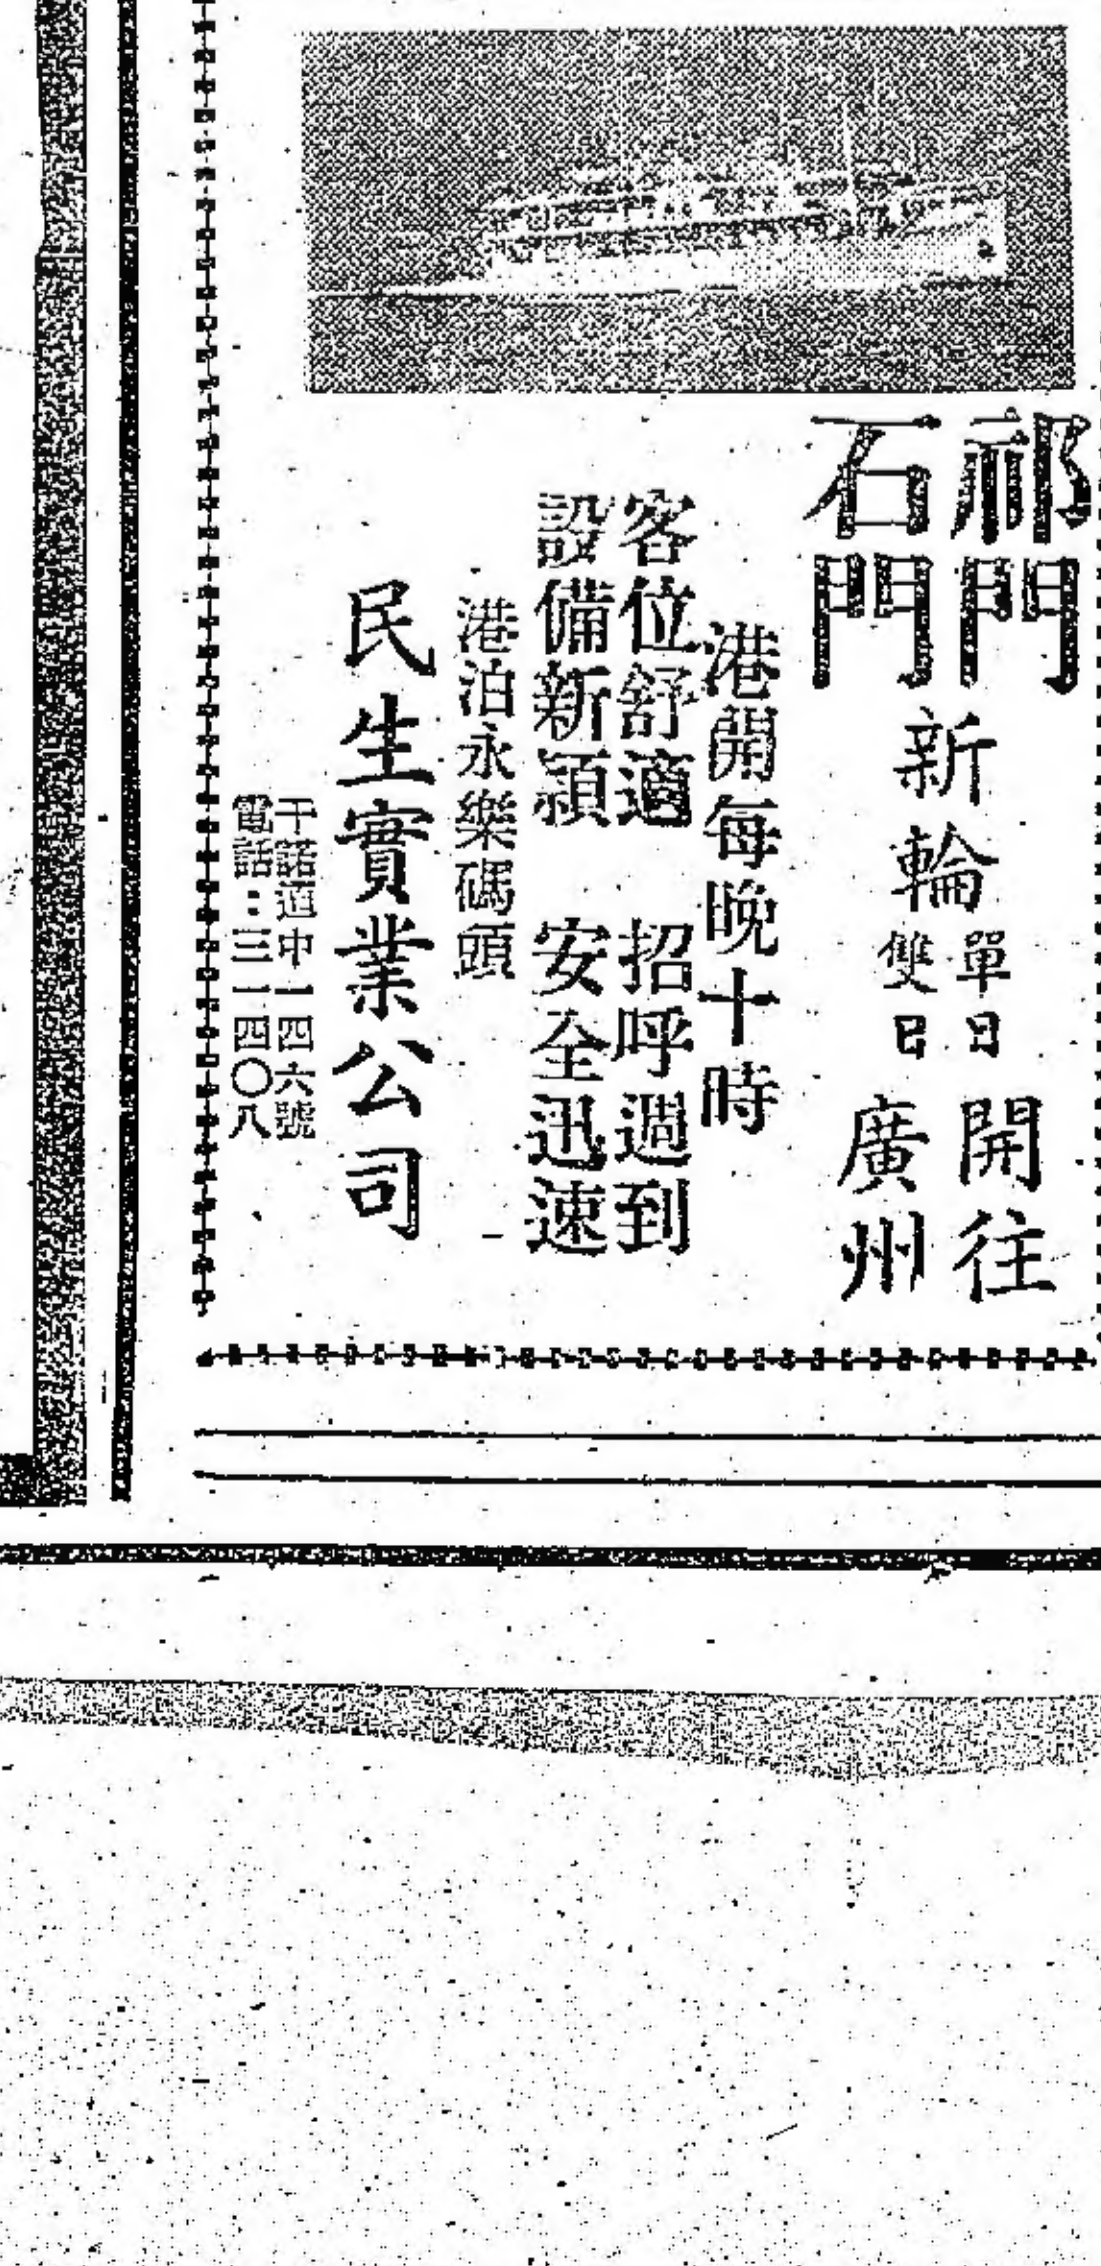 祁門
石門
新輪
單日
雙日
開往
廣州
港開每晚十時
客位舒適 招呼週到
設備新穎 安全迅速
港泊永樂碼頭
民生實業公司
干諾道中一四六號
電話：三一四〇八